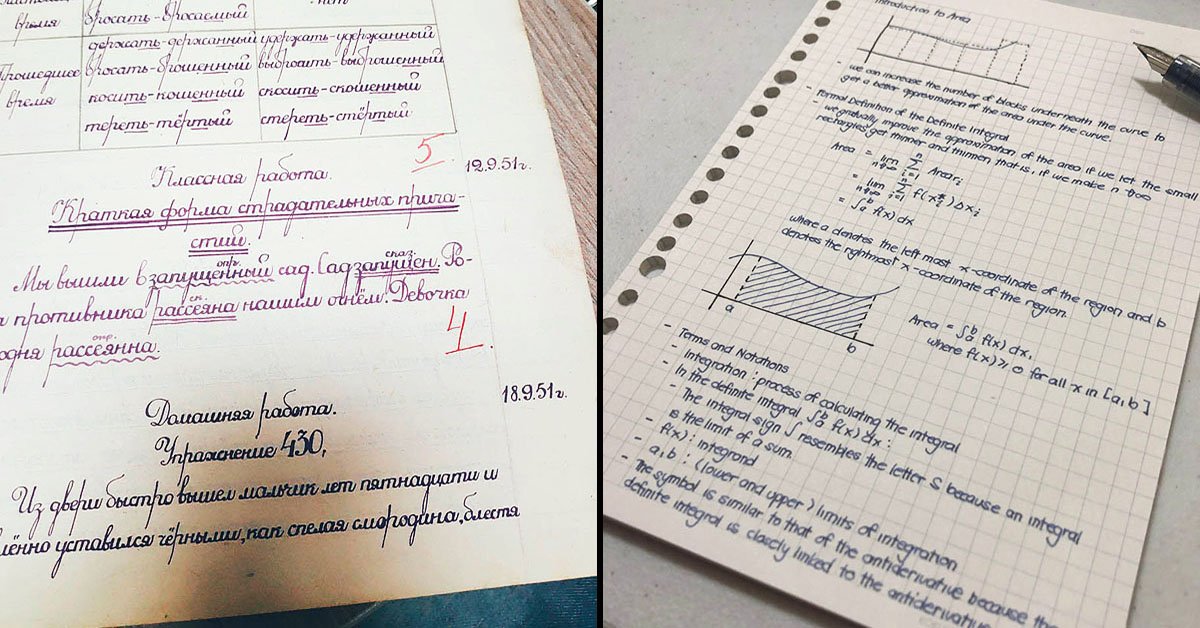 время
бросать-бросаемый
нет
Прошедшее
время
держать-держанный
удержать-удержанный
бросать-брошенный
выбросить-выброшенный
косить-кошенный
скосить-скошенный
тереть-тёртый
стереть-стёртый
5
12.9.51г.
Классная работа.
Краткая форма страдательных прича-
стий.
опр.
сказ.
Мы вышли в запущенный сад. Сад запущен. Ро-
ск.
а противника рассеяна нашим огнём. Девочка
4
опр.
одня рассеянна.
18.9.51г.
Домашняя работа.
Упражнение 430,
Из двери быстро вышел мальчик лет пятнадцати и
лённо уставился чёрными, как спелая смородина, блестя
Introduction to Area
- we can increase the number of blocks underneath the curve to
get a better approximation of the area under the curve.
- Formal Definition of the Definite Integral
- we gradually improve the approximation of the area if we let the small
rectangles get thinner and thinner, that is, if we make n → ∞
Area = lim n→∞ n Σ i=1 Area i
= lim n→∞ n Σ i=1 f(x*i) Δxi
= ∫ b a f(x) dx
where a denotes the left most x-coordinate of the region and b
denotes the rightmost x-coordinate of the region.
a
b
Area = ∫ b a f(x) dx,
where f(x) ≥ 0 for all x in [a,b]
- Terms and Notations
- Integration : process of calculating the integral
- In the definite integral ∫ b a f(x) dx :
- The integral sign ∫ resembles the letter S because an integral
is the limit of a sum.
- f(x) : integrand
- a, b : (lower and upper) limits of integration
- The symbol is similar to that of the antiderivative because the
definite integral is closely linked to the antiderivative